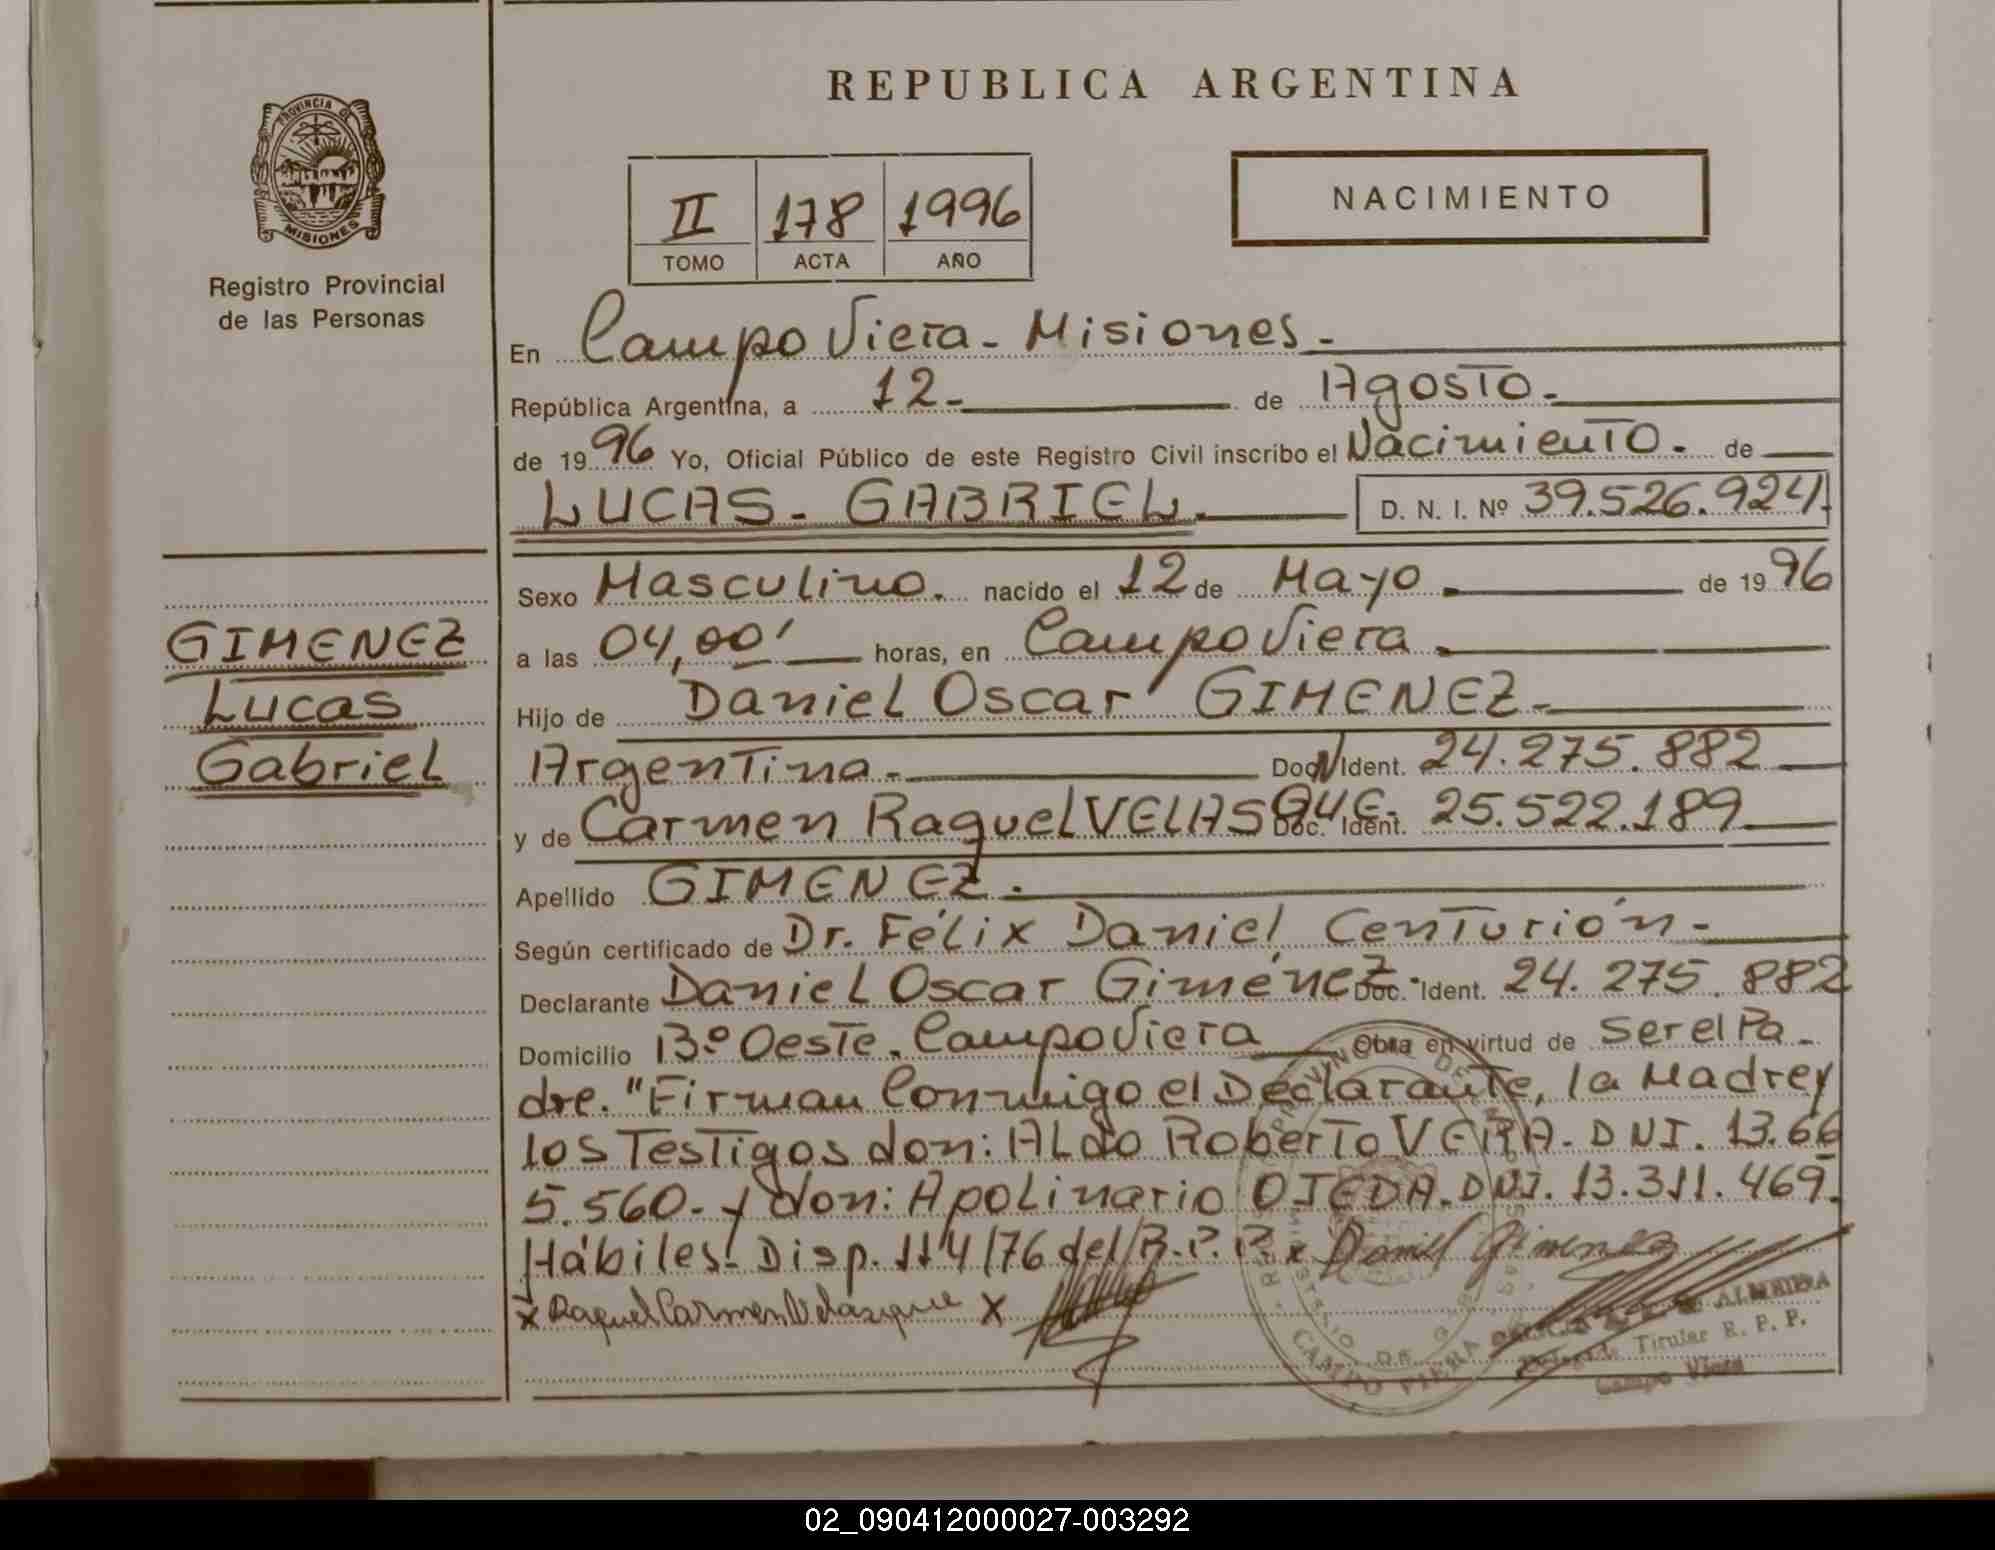 REPUBLICA ARGENTINA
PROVINCIA DE
MISIONES
Registro Provincial
de las Personas
II 178 1996
TOMO ACTA AÑO
NACIMIENTO
En Campo Viera - Misiones.-
República Argentina, a 12.- de Agosto.-
de 1996 Yo, Oficial Público de este Registro Civil inscribo el Nacimiento. de
LUCAS - GABRIEL. D. N. I. Nº 39.526.924.
Sexo Masculino. nacido el 12 de Mayo. de 1996
a las 04,00' horas, en Campo Viera.
Hijo de Daniel Oscar GIMENEZ.-
Argentina.- Doc. Ident. 24.275.882
y de Carmen Raquel VELASQUE- Doc. Ident. 25.522.189
Apellido GIMENEZ.
Según certificado de Dr. Félix Daniel Centurión.-
Declarante Daniel Oscar Giménez. Doc. Ident. 24.275.882
Domicilio Bº Oeste. Campo Viera Obra en virtud de Ser el Pa-
dre. "Firman Conmigo el Declarante, la Madre y
los Testigos don: Aldo Roberto VERA. DNI. 13.66
5.560.- y don: Apolinario OJEDA. DNI. 13.311.469.
Hábiles. Disp. 114/76 del R.P.P. x Daniel Gimenez
x Raquel Carmen Velasque x
GIMENEZ
Lucas
Gabriel
CAMPO VIERA
ALMEIDA
Titular R. P. P.
Campo Viera
02_090412000027-003292